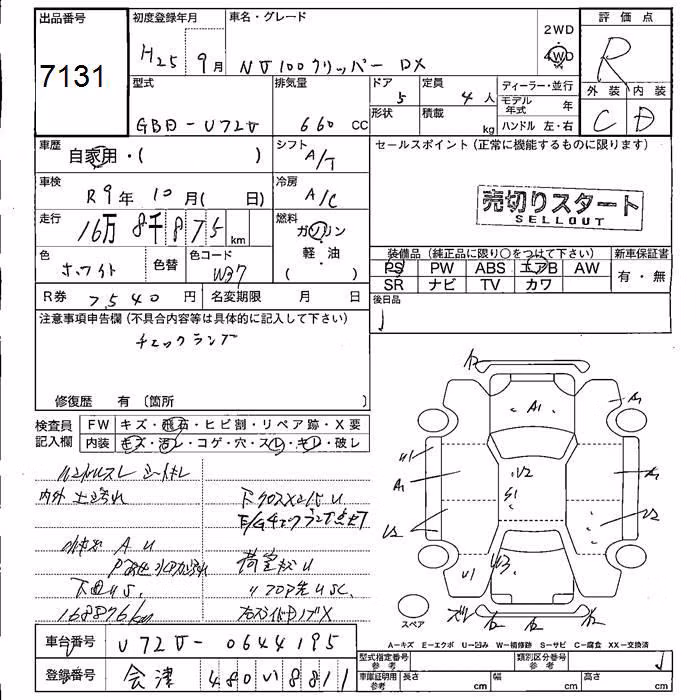 出品番号
7131
初度登録年月
H25 9月
車名・グレード
NV100クリッパー DX
2WD
4WD
評価点
R
外装 内装
C D
型式
GBD-U72V
排気量
660 CC
ドア
5
形状
定員
4人
積載
kg
ディーラー・並行
モデル年式 年
ハンドル 左・右
車歴
自家用・( )
シフト
A/T
セールスポイント(正常に機能するものに限ります)
売切りスタート
SELLOUT
車検
R9年 10月( 日)
冷房
A/C
走行
16万8千875 km
燃料
ガソリン
軽・油
( )
色
ホワイト
色替
色コード
W37
装備品(純正品に限り○をつけて下さい)
新車保証書
PS PW ABS エアB AW
SR ナビ TV カワ
有・無
R券 7540円
名変期限 月 日
後日品
注意事項申告欄(不具合内容等は具体的に記入して下さい)
チェックランプ
修復歴 有〔箇所 〕
検査員記入欄
FW キズ・飛石・ヒビ割・リペア跡・X要
内装 キズ・汚レ・コゲ・穴・スレ・キレ・破レ
ハンドルスレ シートキレ
内外 土汚れ
E/Gチェックランプ点灯
下回りS.
168876km
A1
A1
A1
A1
U1
U2
U2
S1
U2
U1
U3
スペア
ズレ
A-キズ E-エクボ U-凹み W-補修跡 S-サビ C-腐食 XX-交換済
車台番号
U72V-0644195
登録番号
会津 480い8811
型式指定番号
参考
類別区分番号
参考
車庫証明用
参考
長さ cm
幅 cm
高さ cm